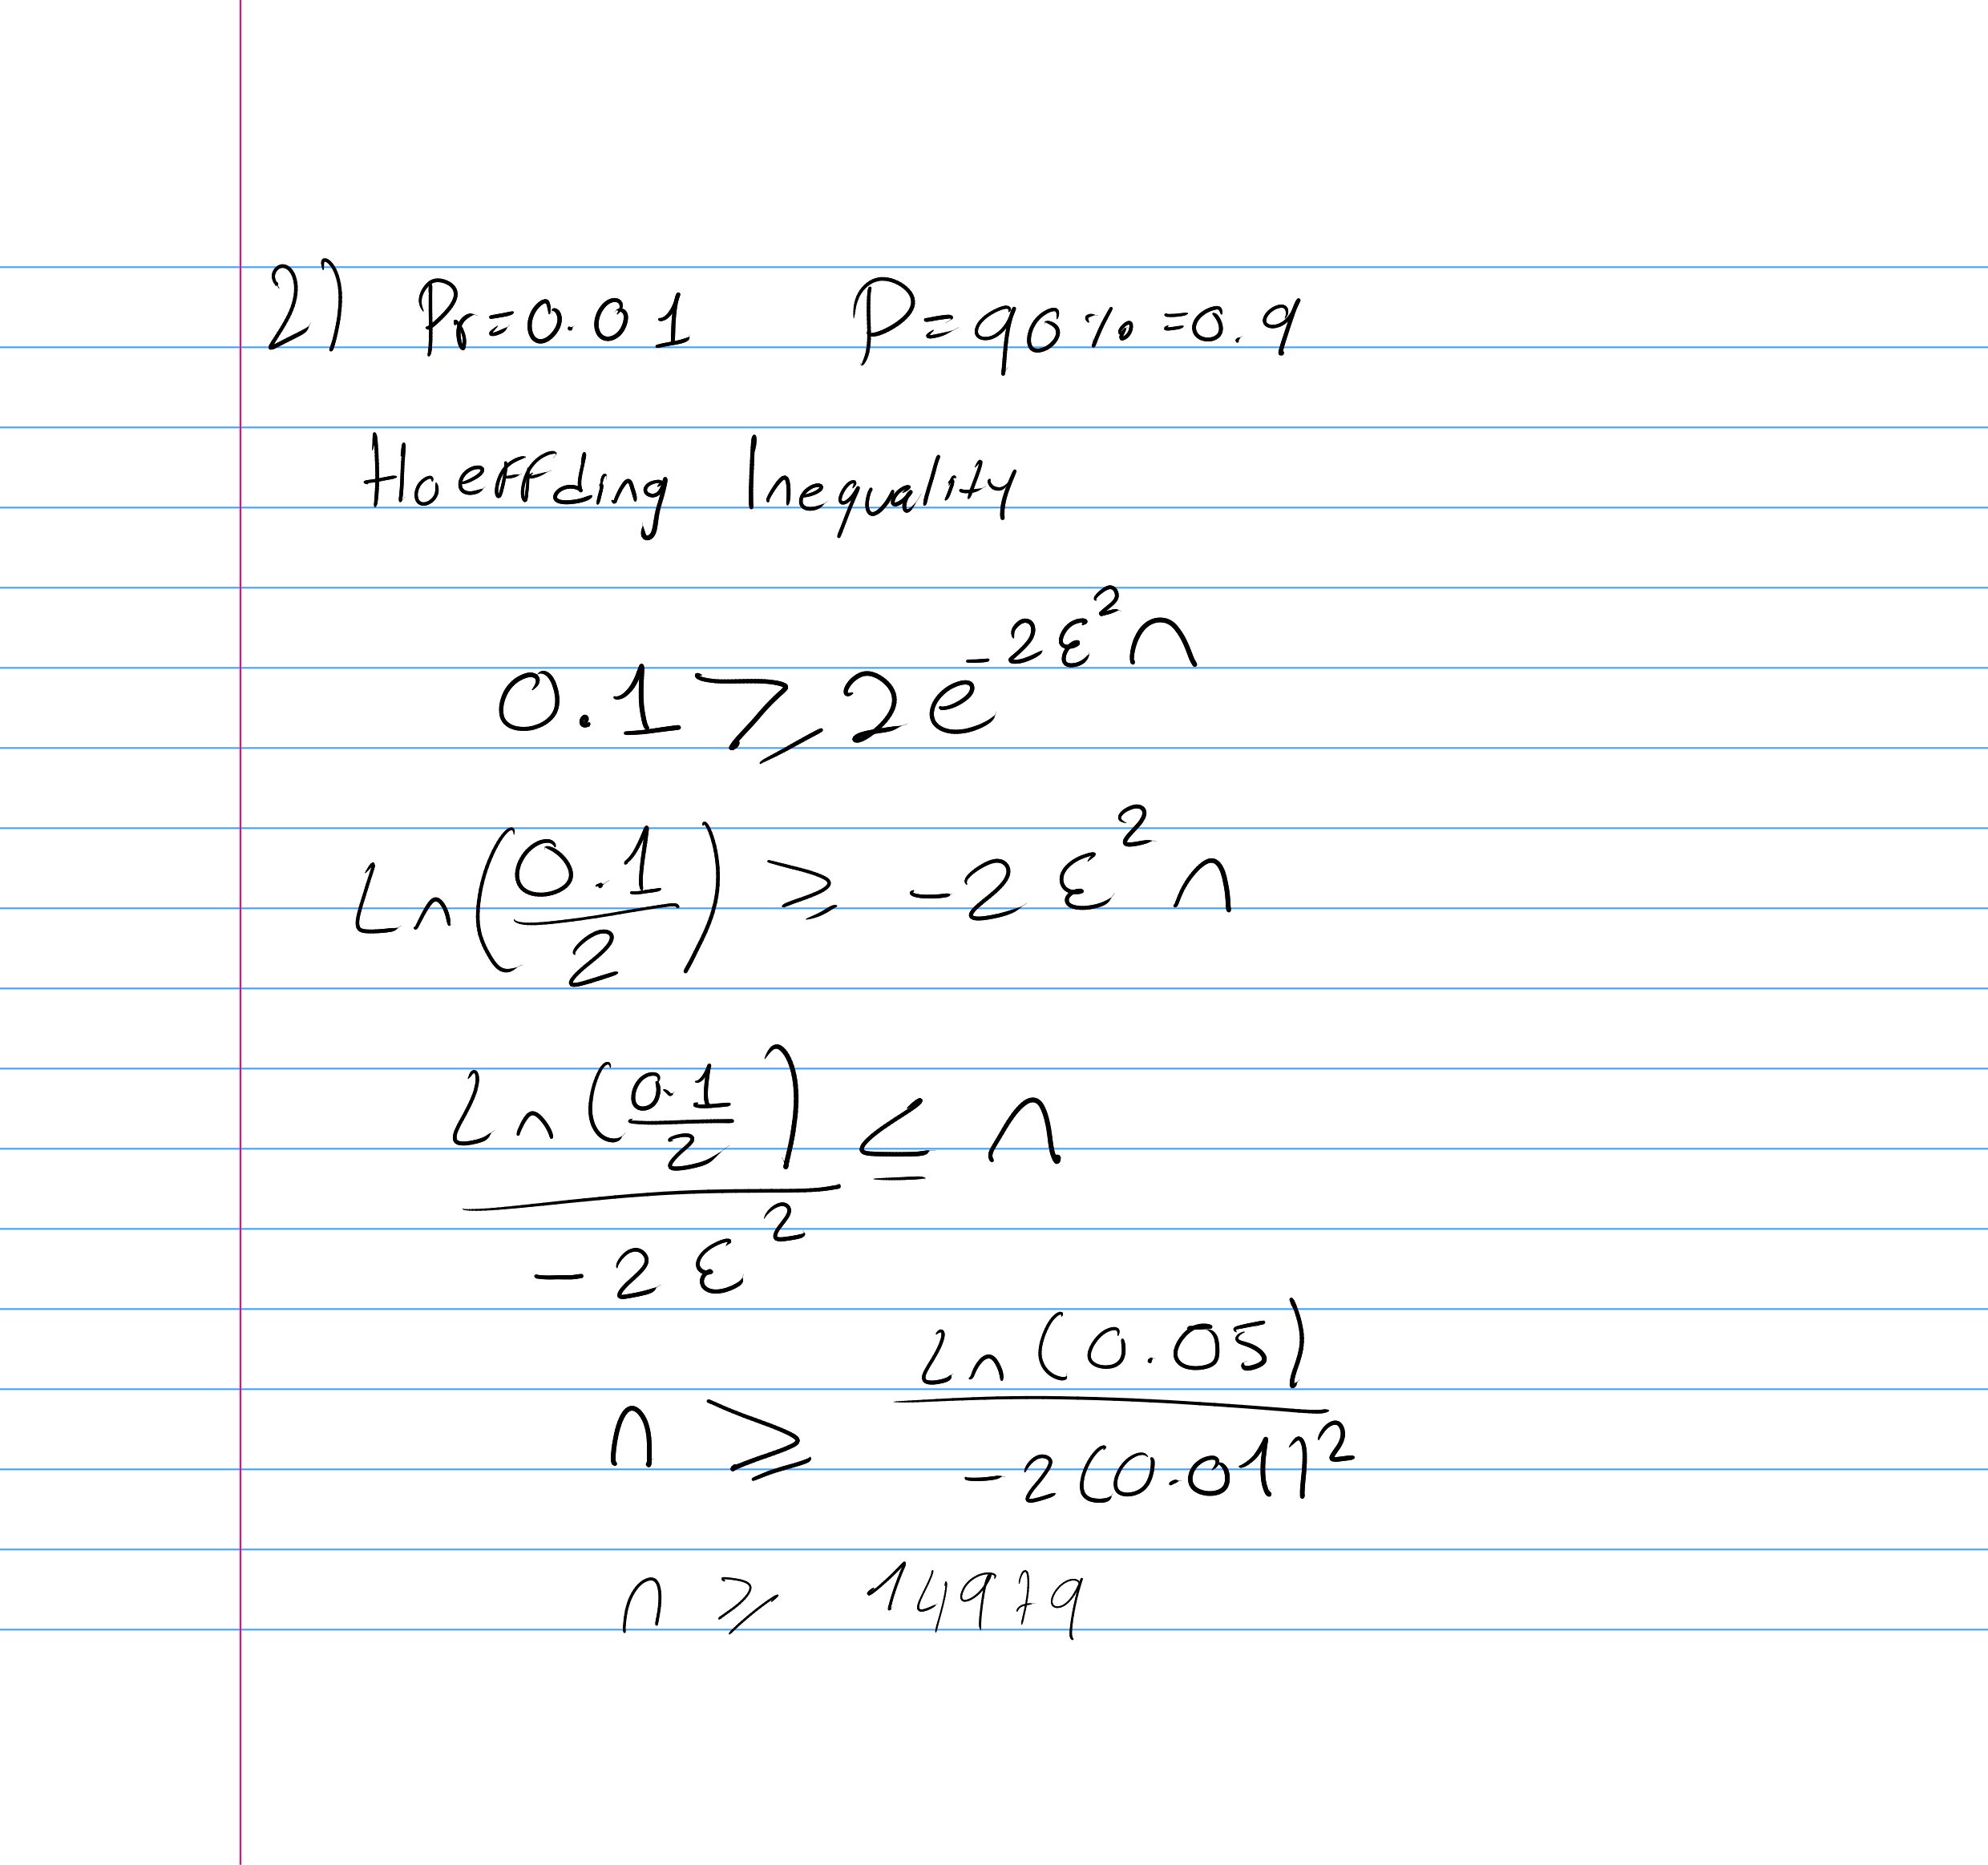 2) Pr=0.01 P=90%=0.9
Hoeffding Inequality
0.1 ⩾ 2e^{-2ε²n}
Ln(0.1/2) ⩾ -2ε²n
Ln(0.1/2) / -2ε² ≤ n
n ⩾ Ln(0.05) / -2(0.01)²
n ⩾ 14979